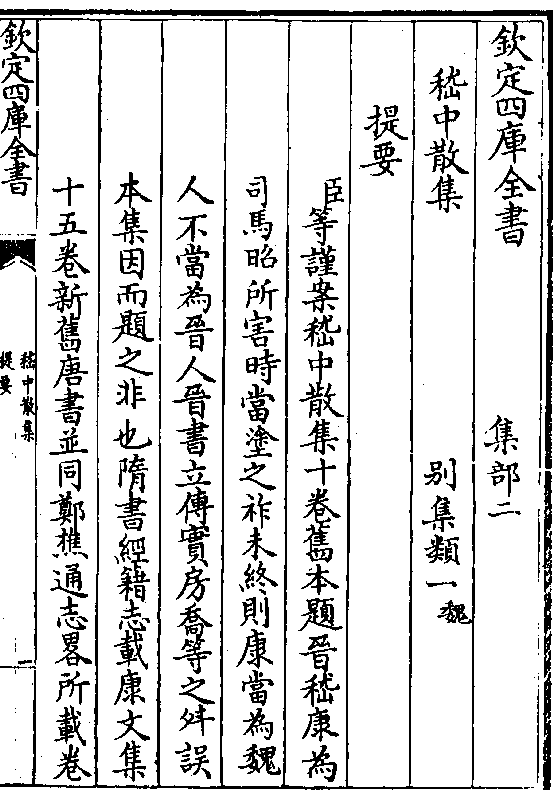 欽定四庫全書 集部二
嵇中散集 别集類一魏
提要
臣等謹案嵇中散集十卷舊本題晉嵇康為
司馬昭所害時當塗之祚未終則康當為魏
人不當為晉人晉書立傳實房喬等之舛誤
本集因而題之非也隋書經籍志載康文集
十五卷新舊唐書並同鄭樵通志畧所載卷
欽定四庫全書
嵇中散集
提要
一